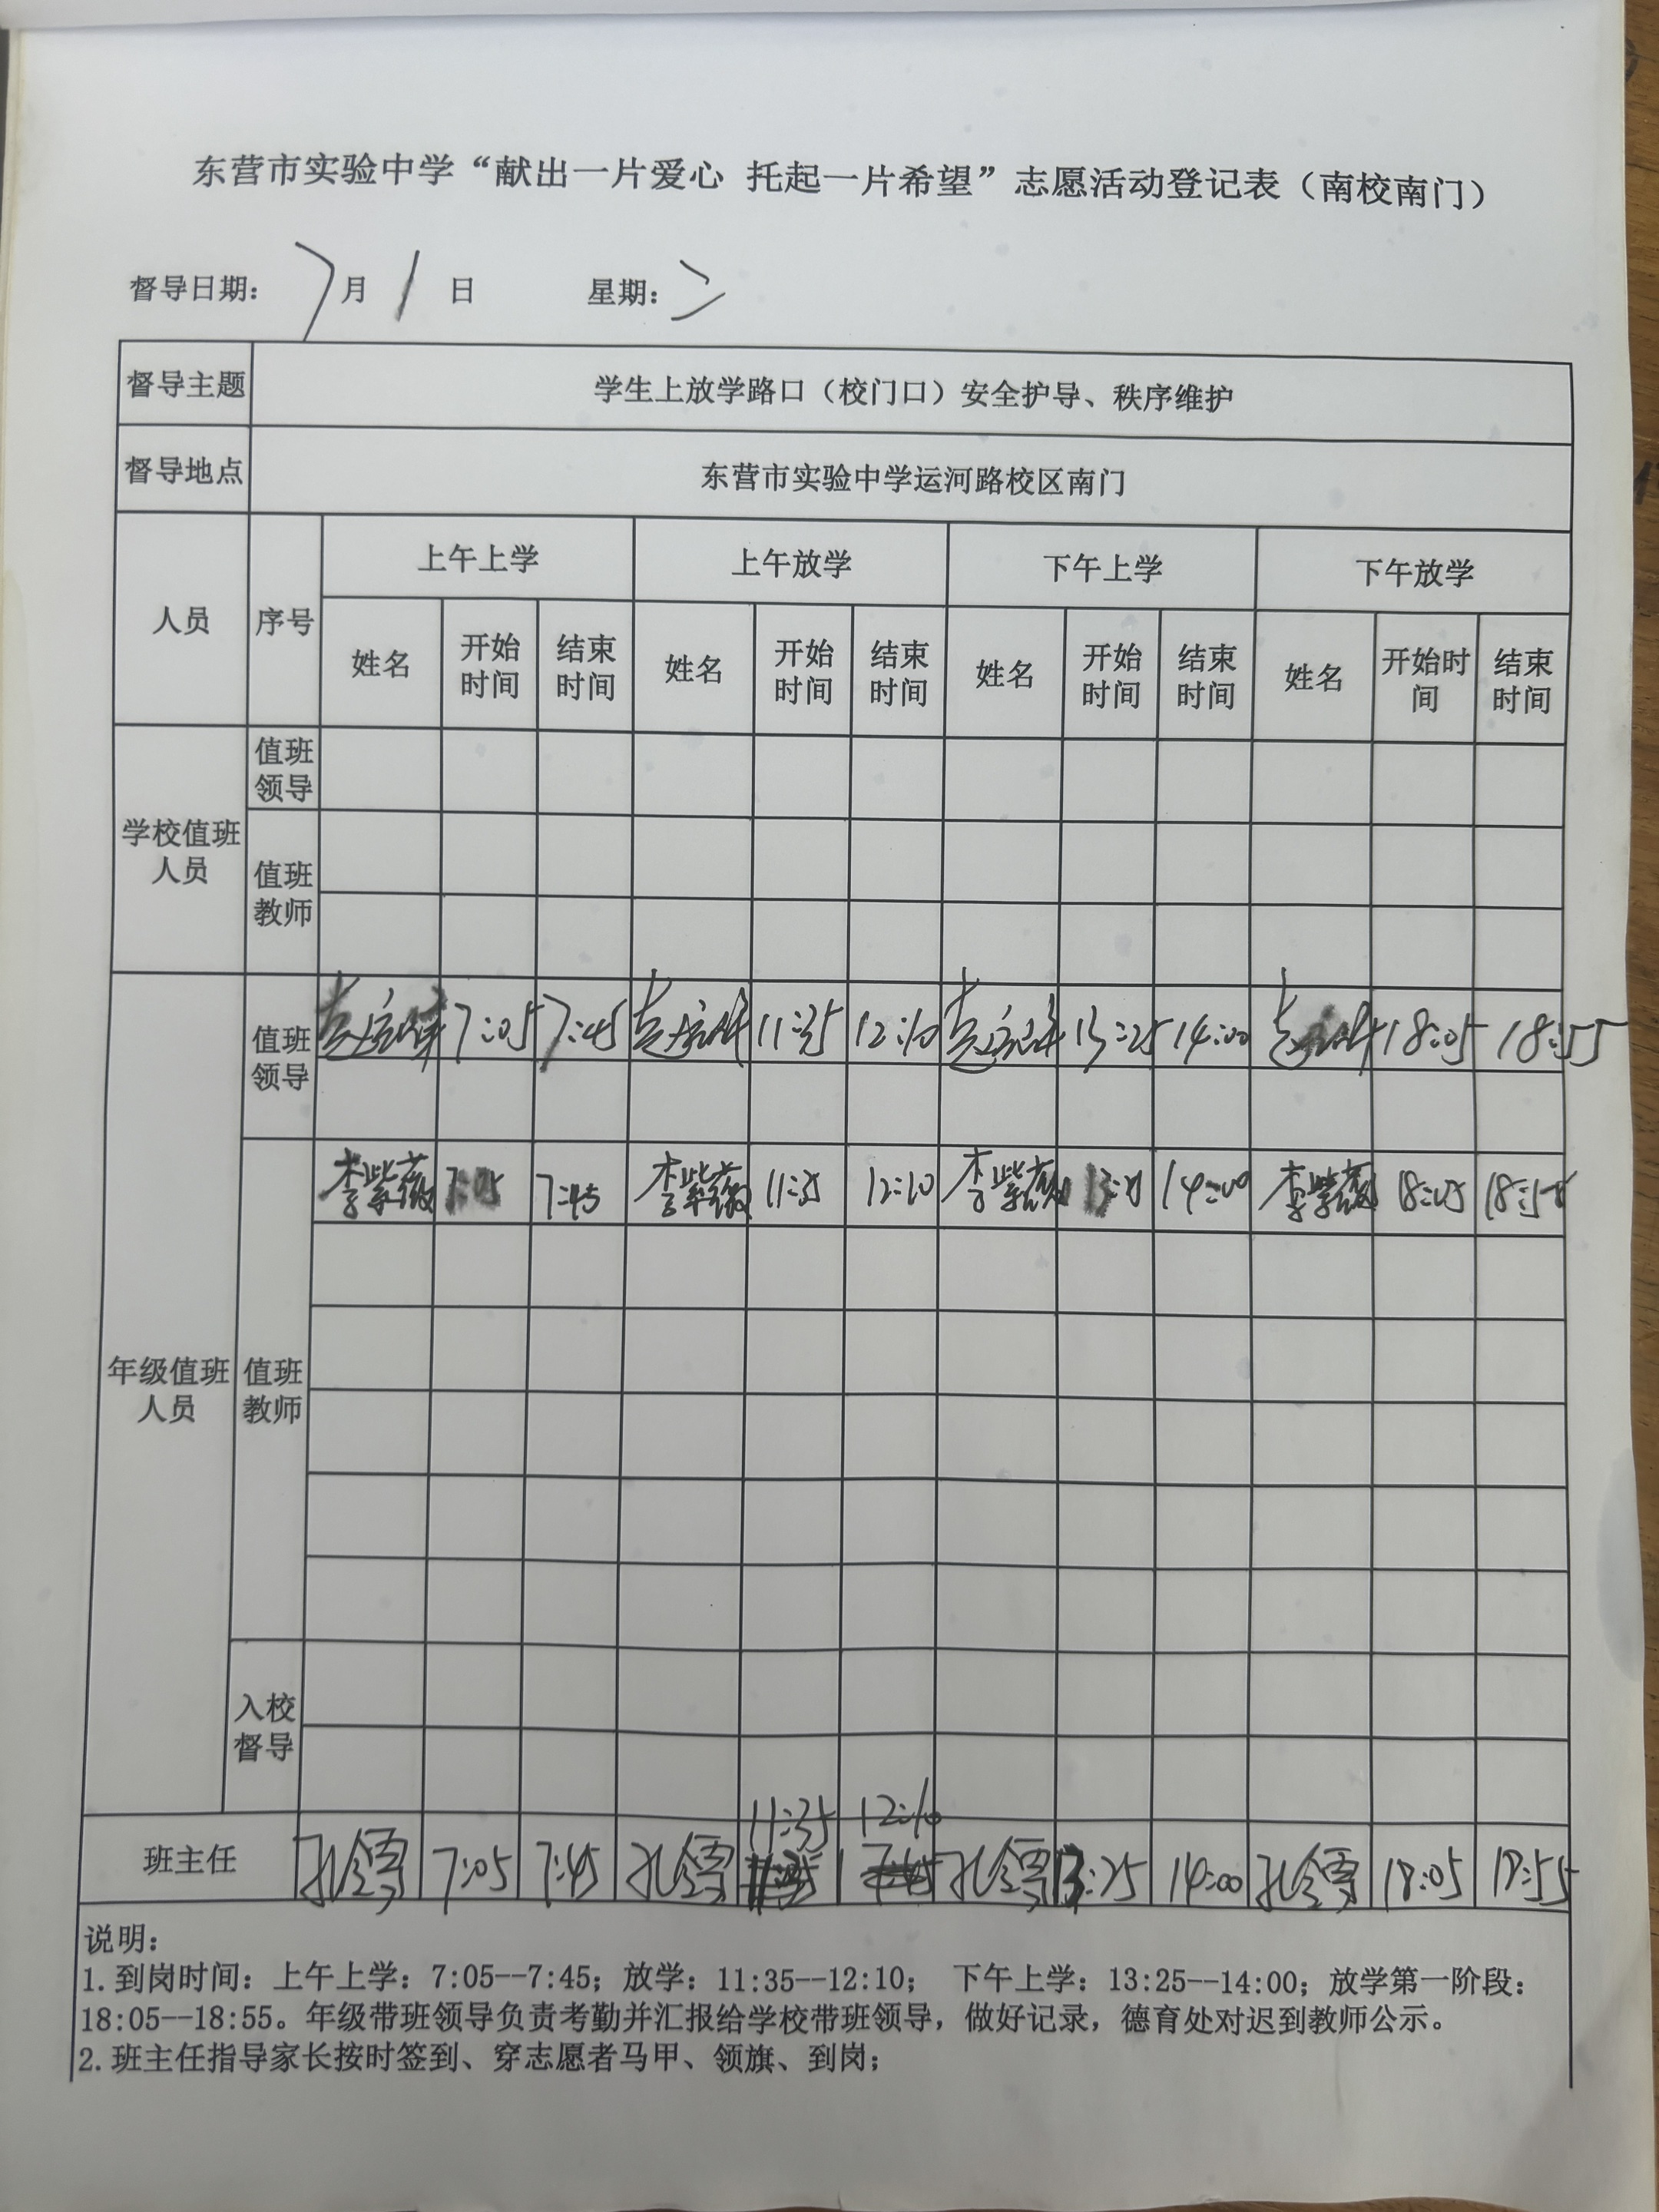 东营市实验中学“献出一片爱心 托起一片希望”志愿活动登记表（南校南门）
督导日期： 7月1日 星期：二
督导主题 学生上放学路口（校门口）安全护导、秩序维护
督导地点 东营市实验中学运河路校区南门
人员 序号 上午上学 上午放学 下午上学 下午放学
姓名 开始时间 结束时间 姓名 开始时间 结束时间 姓名 开始时间 结束时间 姓名 开始时间 结束时间
学校值班人员 值班领导
值班教师
年级值班人员 值班领导 7:05 7:45 11:35 12:10 13:25 14:00 18:05 18:55
值班教师 李紫薇 7:05 7:45 李紫薇 11:35 12:10 李紫薇 14:00 李紫薇 18:05 18:55
入校督导
11:35 12:10
班主任 7:05 7:45 13:25 14:00 18:05 18:55
说明：
1.到岗时间：上午上学：7:05--7:45；放学：11:35--12:10； 下午上学：13:25--14:00；放学第一阶段：
18:05--18:55。年级带班领导负责考勤并汇报给学校带班领导，做好记录，德育处对迟到教师公示。
2.班主任指导家长按时签到、穿志愿者马甲、领旗、到岗；